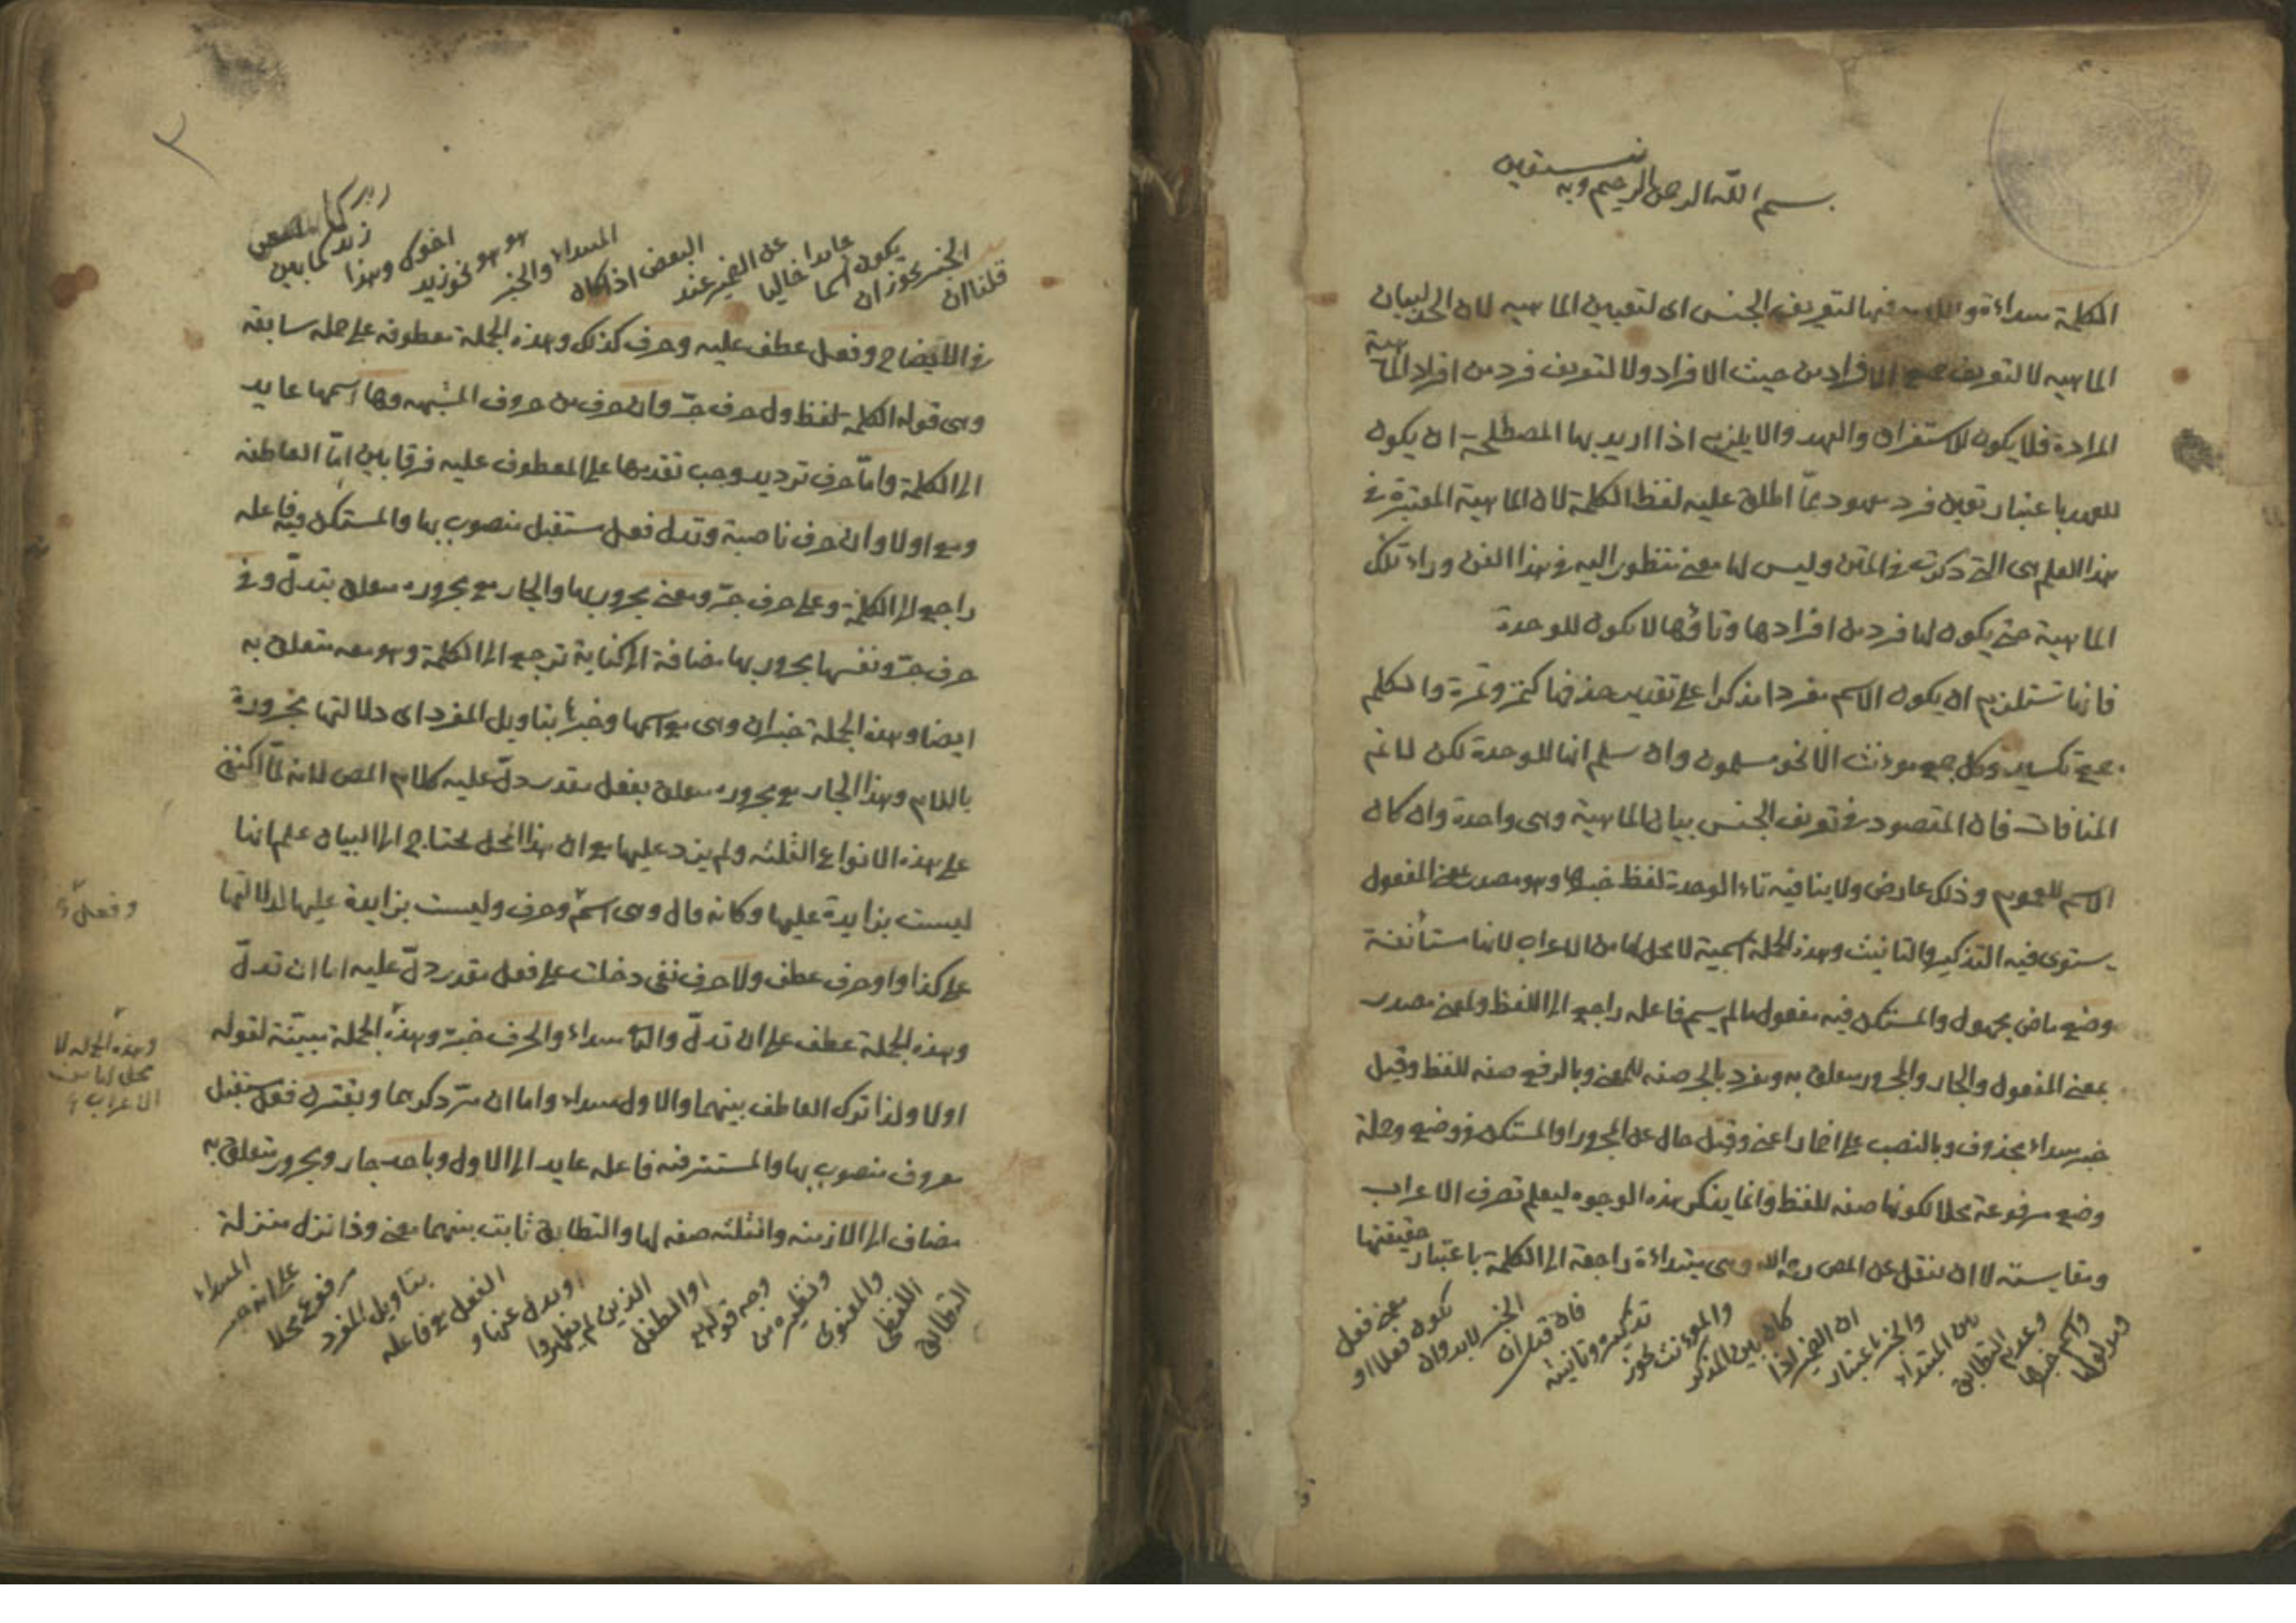 بسم الله الرحمن الرحيم وبه نستعين
الكلمة مبتداءة واللام فيها لتعريف الجنس اى لتعيين الماهيه لان الحد لبيان
الماهيه لا لتعريف جميع الافراد من حيث الافراد ولا لتعريف فرد من افراد الماهية
المرادة فلا يكون للاستغراق والعهد والا يلزم اذا اريد بها المصطلحة ان يكون
للعهد باعتبار تعين فرد معهود مما اطلق عليه لفظ الكلمة لان الماهية المعتبرة فى
هذا العلم هى التى ذكرت فى المتن وليس لها معنى منظور اليه فى هذا الفن وراء تلك
الماهية حتى يكون لها فرد من افرادها وتاؤها لا يكون للوحدة
فانها تستلزم ان يكون الاسم مفردا مذكرا على تقدير حذفها كتمر وتمرة والكلم
جمع تكسير وكل جمع مؤنث الا نحو مسلمون وان سلم انها للوحدة لكن لا غم
المنافات فان المقصود فى تعريف الجنس بيان الماهية وهى واحدة وان كان
الاسم للعموم وذلك عارض ولا ينافيه تاء الوحدة لفظ خبرها وهو مصدر بمعنى المفعول
يستوى فيه التذكير والتانيث وهذه الجملة اسمية لا محل لها من الاعراب لانها مستأنفة
وضع ماض مجهول والمستكن فيه مفعول ما لم يسم فاعله راجع الى اللفظ ولمعنى مصدر
بمعنى المفعول والجار والمجرور متعلق به ومفرد بالجر صفه للمعنى وبالرفع صفه للفظ وقيل
خبر مبتداء محذوف وبالنصب على اضمار اعنى وقيل حال عن المجرور او المستكن فى وضع وجملة
وضع مرفوعة محلا لكونها صفه للفظ وانما يذكر هذه الوجوه ليعلم تصرف الاعراب
ومقايسته لا ان ينقل عن المص رحمه الله وهى مبتداءة راجعة الى الكلمة باعتبار حقيقتها
ومدلولها واسم خبرها وعدم التطابق بين المبتداء والخبر باعتبار ان الضمير اذا كان بين المذكر والمؤنث يجوز تذكيره وتانيثه فان قيل ان الخبر لا بد وان يكون فعلا او معنى فعل
قلنا ان الخبر يجوز ان يكون اسما عاريا خاليا عن الضمير عند البعض اذا كان المبتداء والخبر هو هو نحو زيد اخوك وهذا زيد كما بين
فى الايضاح وفعل عطف عليه وحرف كذلك وهذه الجملة معطوفة على جملة سابقة
وهى قوله الكلمة لفظ ول حرف جر وان حرف من حروف المشبهه وها اسمها عايد
الى الكلمة واما حرف ترديد وجب تقديمها على المعطوف عليه فرقا بين اما العاطفه
وبين او لا وان حرف ناصبة وتدل فعل مستقبل منصوب بها والمستكن فيه فاعله
راجع الى الكلمة وعلى حرف جر ومعنى مجرور بها والجار مع مجروره متعلق بتدل وفى
حرف جر ونفسها مجرور بها مضافة الى كناية ترجع الى الكلمة وهو معه متعلق به
ايضا وهذه الجملة خبر ان وهى مع اسمها وخبرها بتاويل المفرد اى دلالتها مجرورة
باللام وهذا الجار مع مجروره متعلق بفعل مقدر يدل عليه كلام المص لانه لما اكتفى
على هذه الانواع الثلثه ولم يزد عليها مع ان هذا المحل محتاج الى البيان علم انها
ليست بزايدة عليها وكانه قال وهى اسم وحرف وليست بزايدة عليها لدلالتها
وفعل
على كذا واو حرف عطف ولا حرف نفى دخلت على فعل مقدر دل عليه اما ان تدل
وهذه الجملة عطف على ان تدل والثانى مبتداء والحرف خبره وهذه الجملة مبينة لقوله
وهذه الجملة لا محل لها من الاعراب
او لا ولذا ترك العاطف بينهما والاول مبتداء واما ان مر ذكرهما ويقترن فعل مستقبل
معروف منصوب بها والمستتر فيه فاعله عايد الى الاول وباحد جار ومجرور متعلق به
مضاف الى الازمنه والثلثه صفه لها والتطابق ثابت بينهما معنى وذا نزل منزلة
التطابق اللفظى والمعنوى ونظيره من وجه قوله تع او الطفل الذين لم يظهروا او يدل عنها والفعل مع فاعله بتاويل المفرد مرفوع محلا على انه خبر المبتداء